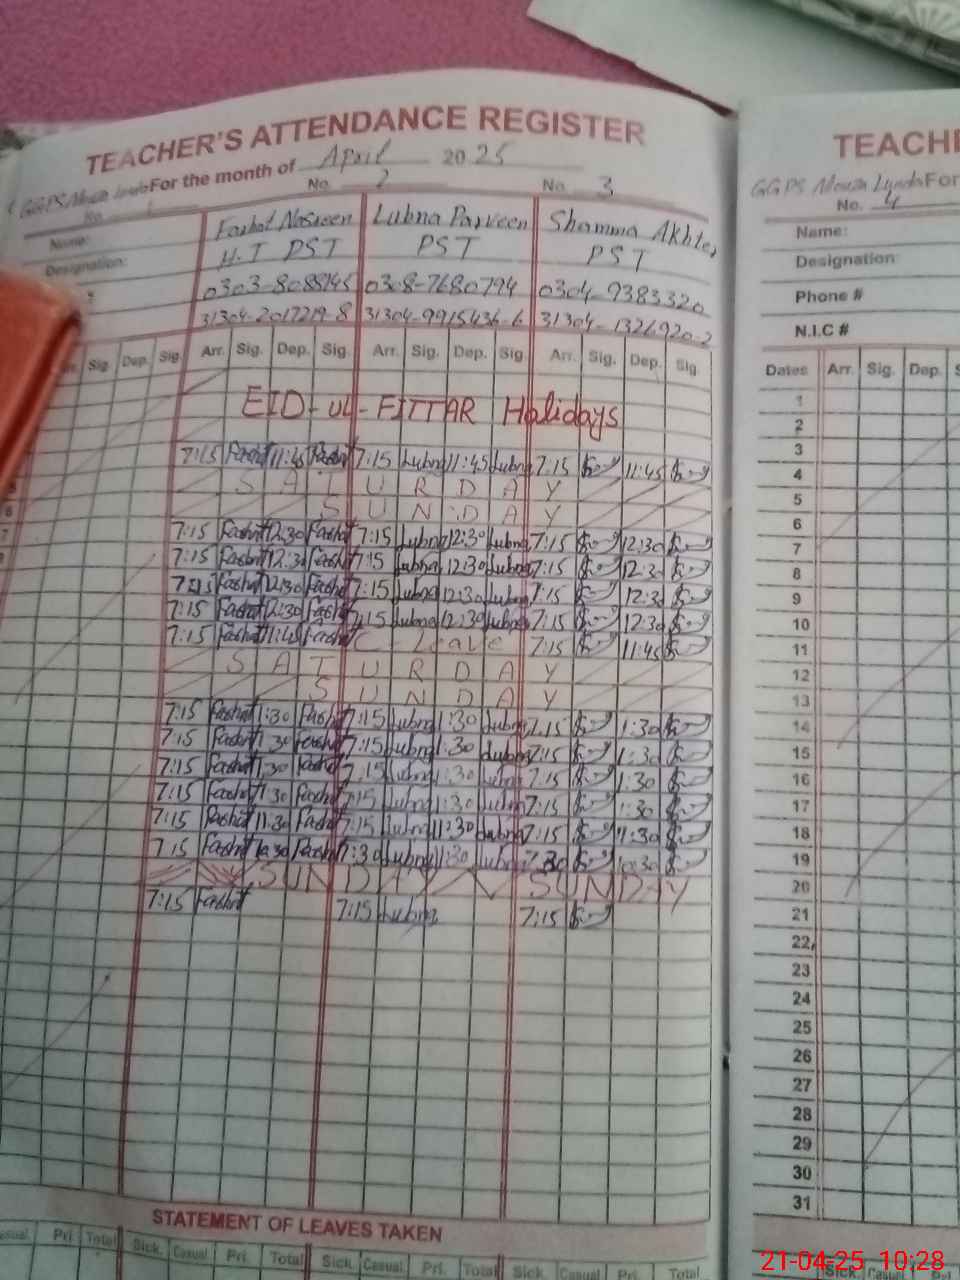 TEACHER'S ATTENDANCE REGISTER
For the month of April 2025
No. 2 No. 3
Name: Farhat Nasreen Lubna Parveen Shamma Akhter
Designation: H.T PST PST PST
0308-7680794 0304-9383320
31304-2017219-8 31304-9915436-6 31304-1326920-2
Sig. Dep. Sig. Arr. Sig. Dep. Sig. Arr. Sig. Dep. Sig. Arr. Sig. Dep. Sig.
EID-UL-FITTAR Holidays
7:15 11:45 7:15 Lubna 11:45 Lubna 7:15 11:45
SATURDAY
SUNDAY
7:15 Farhat 12:30 Farhat 7:15 Lubna 12:30 Lubna 7:15 12:30
7:15 Farhat 12:30 Farhat 7:15 Lubna 12:30 Lubna 7:15 12:30
7:15 Farhat 12:30 Farhat 7:15 Lubna 12:30 Lubna 7:15 12:30
7:15 Farhat 12:30 Farhat 7:15 Lubna 12:30 Lubna 7:15 12:30
7:15 Farhat 11:45 Farhat C-Leave 7:15 11:45
SATURDAY
SUNDAY
7:15 Farhat 1:30 Farhat 7:15 Lubna 1:30 Lubna 7:15 1:30
7:15 Farhat 1:30 Farhat 7:15 Lubna 1:30 Lubna 7:15 1:30
7:15 Farhat 1:30 Farhat 7:15 Lubna 1:30 Lubna 7:15 1:30
7:15 Farhat 1:30 Farhat 7:15 Lubna 1:30 Lubna 7:15 1:30
7:15 Farhat 11:30 Farhat 7:15 Lubna 11:30 Lubna 7:15 11:30
7:15 Farhat Farhat Lubna Lubna
SUNDAY SUNDAY
7:15 Farhat 7:15 Lubna 7:15
STATEMENT OF LEAVES TAKEN
Pri. Total Sick. Casual. Pri. Total Sick. Casual. Pri. Total Sick. Casual. Pri. Total
TEACHE
GGPS Moza Lynda For
No. 4
Name:
Designation:
Phone #
N.I.C #
Dates Arr. Sig. Dep.
1
2
3
4
5
6
7
8
9
10
11
12
13
14
15
16
17
18
19
20
21
22
23
24
25
26
27
28
29
30
31
Sick. Casual
21-04-25 10:28